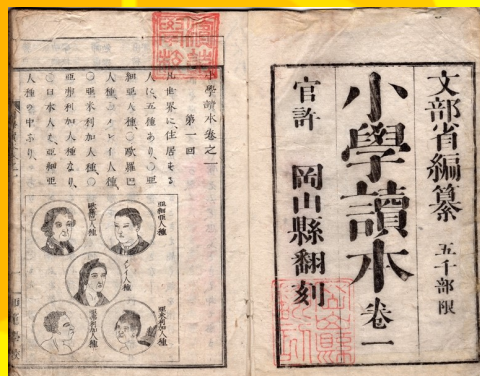 文部省編纂 五千部限
小學讀本 卷一
官許 岡山縣翻刻
小學讀本卷之一
第一回
凡世界に住居する
人に五種あり、〇亞
細亞人種、〇歐羅巴
人種、〇マレイ人種、
〇亞米利加人種、
亞弗利加人種なり、
〇日本人は、亞細亞
人種の中なり、
亞細亞人種
歐羅巴人種
マレイ人種
亞米利加人種
亞弗利加人種